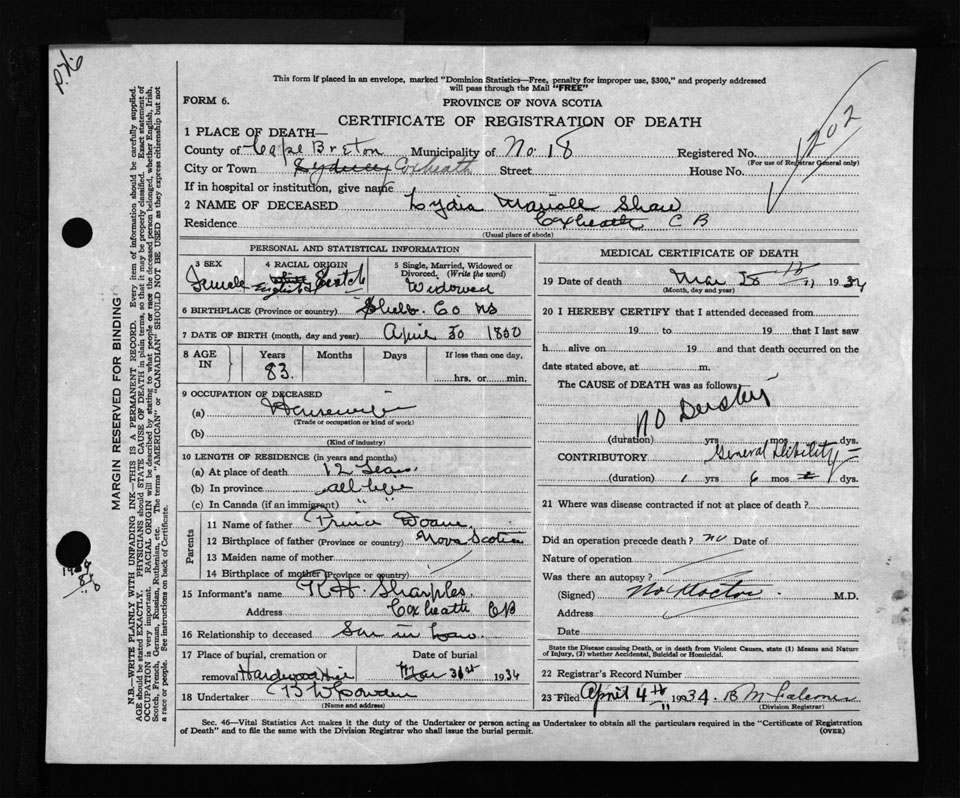 P.K6
This form if placed in an envelope, marked "Dominion Statistics—Free, penalty for improper use, $300," and properly addressed
will pass through the Mail "FREE"
FORM 6.
PROVINCE OF NOVA SCOTIA
CERTIFICATE OF REGISTRATION OF DEATH
1202
1 PLACE OF DEATH—
County of Cape Breton Municipality of No 18 Registered No.
(For use of Registrar General only)
City or Town Sydney Coxheath Street House No.
If in hospital or institution, give name
2 NAME OF DECEASED Lydia Shaw
Residence Coxheath C B
(Usual place of abode)
PERSONAL AND STATISTICAL INFORMATION
3 SEX 4 RACIAL ORIGIN 5 Single, Married, Widowed or Divorced. (Write the word)
Female English Scotch Widowed
6 BIRTHPLACE (Province or country) Shelb. Co NS
7 DATE OF BIRTH (month, day and year) April 30 1850
8 AGE IN Years Months Days If less than one day,
83. hrs. or min.
9 OCCUPATION OF DECEASED
(a) Housewife
(Trade or occupation or kind of work)
(b)
(Kind of industry)
10 LENGTH OF RESIDENCE (in years and months)
(a) At place of death 12 Years.
(b) In province all life
(c) In Canada (if an immigrant) " "
Parents
11 Name of father Prince Doane
12 Birthplace of father (Province or country) Nova Scotia
13 Maiden name of mother
14 Birthplace of mother (Province or country)
15 Informant's name H. Sharples
Address Coxheath CB
16 Relationship to deceased Son in Law.
17 Place of burial, cremation or removal Date of burial
Hardwood Hill Mar 31st 1934
18 Undertaker
(Name and address)
MEDICAL CERTIFICATE OF DEATH
19 Date of death Mar 1934
(Month, day and year)
20 I HEREBY CERTIFY that I attended deceased from
19 to 19 that I last saw
h alive on 19 and that death occurred on the
date stated above, at m.
The CAUSE OF DEATH was as follows
No
(duration) yrs mos dys.
CONTRIBUTORY General Dibility
(duration) 1 yrs 6 mos dys.
21 Where was disease contracted if not at place of death?
Did an operation precede death? no Date of
Nature of operation
Was there an autopsy?
(Signed) No Doctor. M.D.
Address
Date
State the Disease causing Death, or in death from Violent Causes, state (1) Means and Nature
of Injury, (2) whether Accidental, Suicidal or Homicidal.
22 Registrar's Record Number
23 Filed April 4th 1934. B M
(Division Registrar)
Sec. 46—Vital Statistics Act makes it the duty of the Undertaker or person acting as Undertaker to obtain all the particulars required in the "Certificate of Registration
of Death" and to file the same with the Division Registrar who shall issue the burial permit. (OVER)
MARGIN RESERVED FOR BINDING
N.B.—WRITE PLAINLY WITH UNFADING INK—THIS IS A PERMANENT RECORD. Every item of information should be carefully supplied.
AGE should be stated EXACTLY. PHYSICIANS should STATE CAUSE OF DEATH in plain terms, so that it may be properly classified. Exact statement of
OCCUPATION is very important. RACIAL ORIGIN will be described by stating to what people or race the deceased person belonged, whether English, Irish,
Scotch, French, German, Russian, Ruthenian, etc. The terms "AMERICAN" or "CANADIAN" SHOULD NOT BE USED as they express citizenship but not
a race or people. See instructions on back of Certificate.